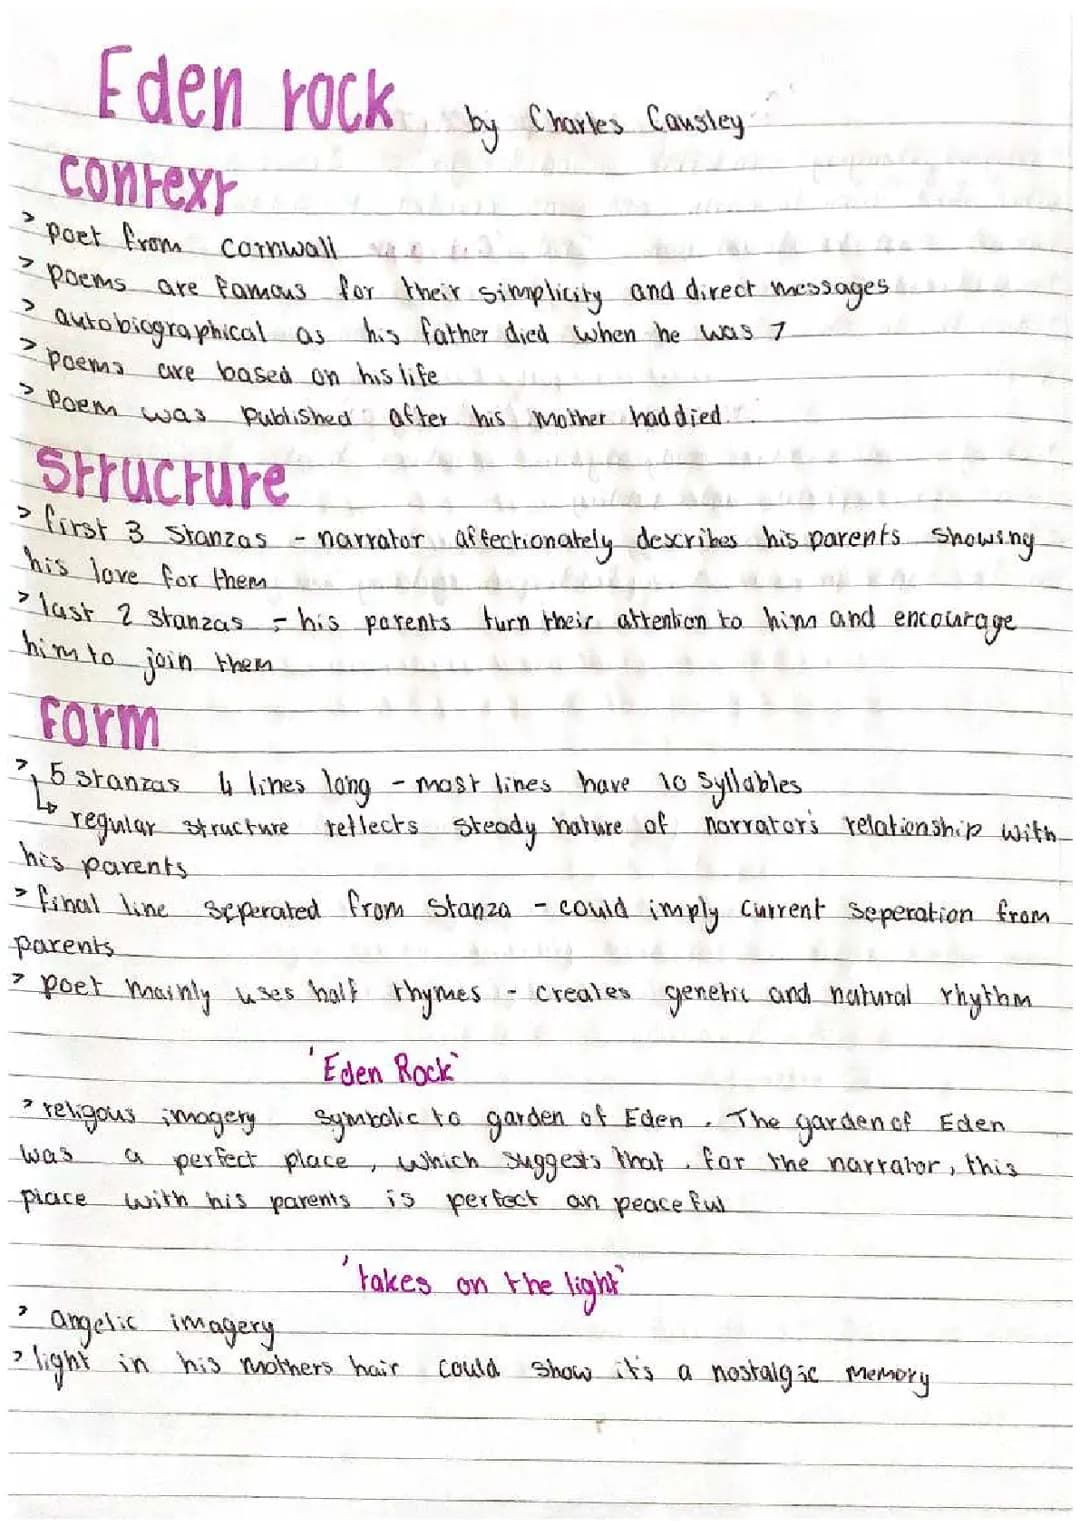 Eden rock by Charles Causley
context
> poet from cornwall
> poems are famous for their simplicity and direct messages
> autobiographical as his father died when he was 7
> poems are based on his life
> Poem was published after his mother had died.
Structure
> first 3 stanzas - narrator affectionately describes his parents showing
his love for them
> last 2 stanzas - his parents turn their attention to him and encourage
him to join them
Form
> 5 stanzas 4 lines long - most lines have 10 syllables
↳ regular structure reflects steady nature of narrator's relationship with
his parents
> final line seperated from stanza - could imply current seperation from
parents
> poet mainly uses half rhymes - creates genetic and natural rhythm
'Eden Rock'
> religous imagery symbolic to garden of Eden. The garden of Eden
was a perfect place, which suggests that, for the narrator, this
place with his parents is perfect an peaceful
'takes on the light'
> angelic imagery
> light in his mothers hair could show it's a nostalgic memory